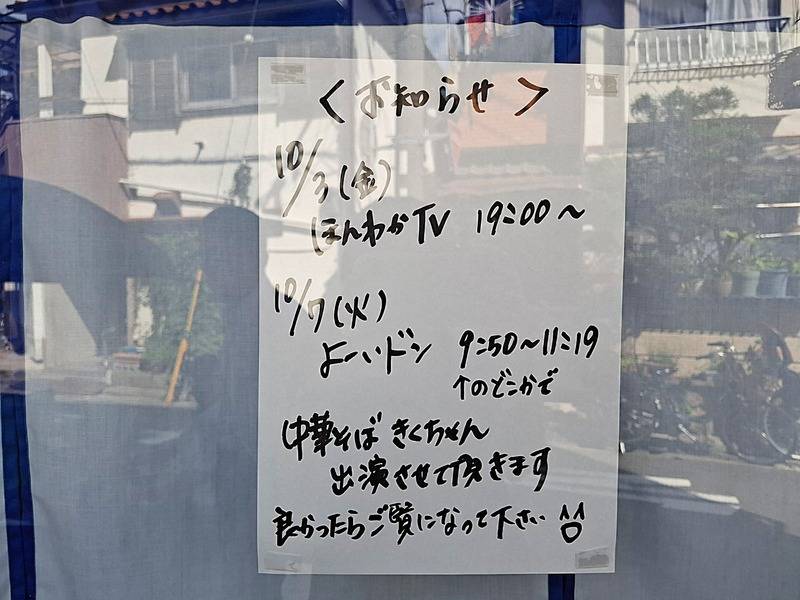 ＜お知らせ＞
10/3(金)
ほんわかTV 19:00～
10/7(火)
よーいドン 9:50～11:19
↑のどこかで
中華そば きくちゃん
出演させて頂きます
良かったらご覧になって下さい